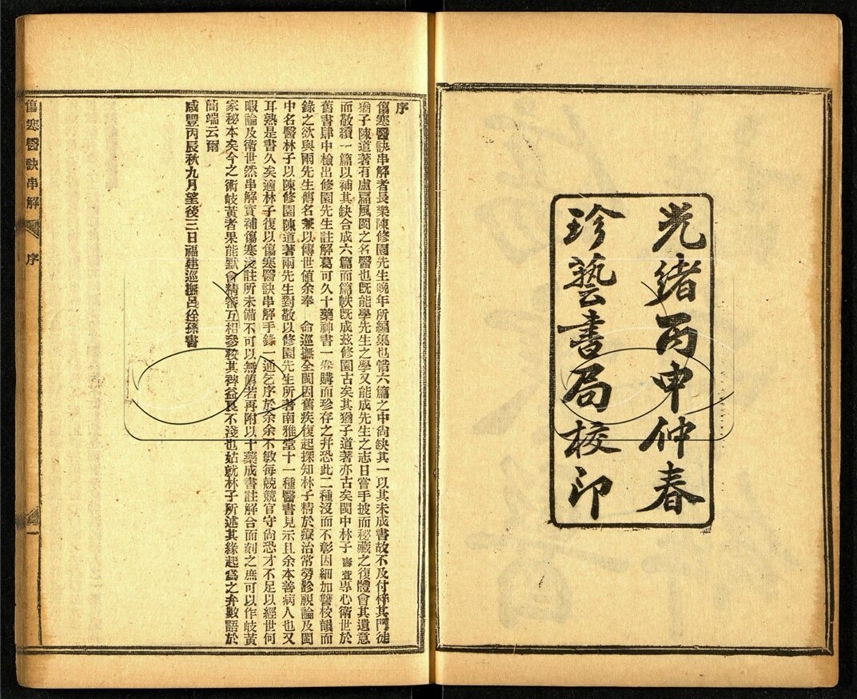 光緒丙申仲春
珍藝書局校印
序
傷寒醫訣串解者長樂陳修園先生晚年所編集也書六篇之中尙缺其一以其未成書故不及付梓其門徒
猶子陳道著有盧扁風閩之名醫也旣能學先生之學又能成先生之志日嘗手披而秘藏之復體會其遺意
而敬續一篇以補其缺合成六篇而篇帙旣成玆修園古矣其猶子道著亦古矣閩中林子壽萱專心衛世於
舊書肆中檢出修園先生註解葛可久十藥神書一卷購而珍存之幷恐此二種沒而不彰因細加讐校韻而
錄之欲與兩先生傳名兼以傳世値余奉 命巡撫全閩因舊疾復起探知林子精於療治常勞診視論及閩
中名醫林子以陳修園陳道著兩先生對敬以修園先生所著南雅堂十一種醫書見示且余本善病人也又
耳熟是書久矣適林子復以傷寒醫訣串解手錄一通乞序於余余不敏每兢兢官守尙恐才不足以經世何
暇論及衛世然串解實補傷寒淺註所未備不可以無傳若再附以十藥成書註解合而刻之庶可以作岐黃
家秘本矣今之術岐黃者果能默會精審互相參校其裨益良不淺也姑就林子所述其緣起爲之弁數語於
簡端云爾
咸豐丙辰秋九月望後三日福建巡撫呂佺孫書
傷寒醫訣串解
序
一